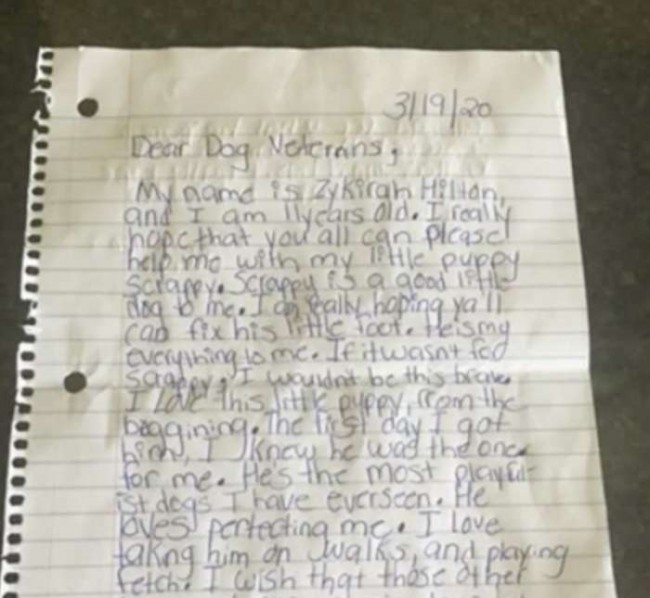 3/19/20
Dear Dog Veterans,
My name is Zykirah Hilton,
and I am 11years old. I really
hope that you all can please
help me with my little puppy
Scrappy. Scrappy is a good little
dog to me. I am really hoping ya'll
can fix his little foot. He is my
everything to me. If it wasn't for
Scrappy, I wouldn't be this brave
I love this little puppy, from the
beggining. The first day I got
him, I knew he was the one
for me. He's the most playful-
ist dogs I have ever seen. He
loves pertecting me. I love
taking him on walks, and playing
fetch. I wish that those other